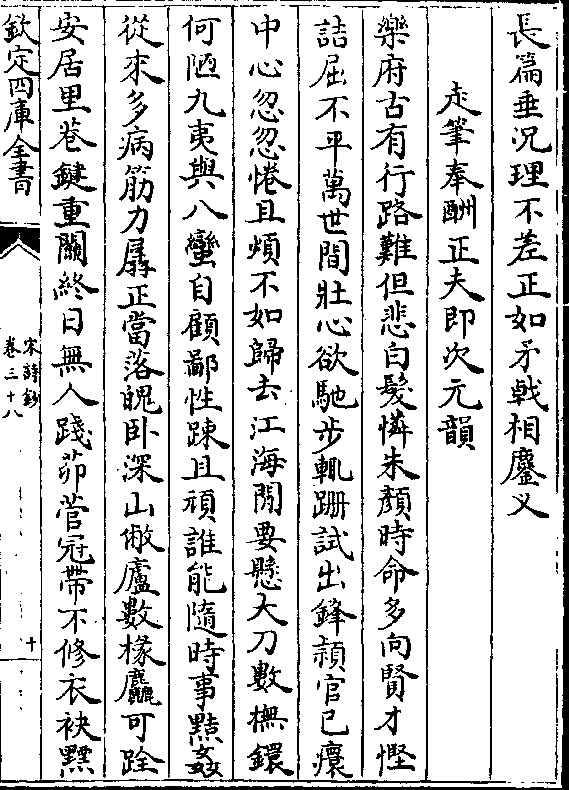 長篇垂况理不差正如矛戟相鏖义
走筆奉酬正夫即次元韻
樂府古有行路難但悲白髮憐朱顔時命多向賢才慳
詰屈不平萬世間壯心欲馳步輒跚試出鋒穎官已癏
中心忽忽惓且煩不如歸去江海閒要懸大刀數橅鐶
何陋九夷與八蠻自顧鄙性踈且頑誰能隨時事黠姦
從來多病筋力孱正當落魄卧深山僘廬數椽麤可跧
安居里巷鍵重關終日無人踐茆菅冠帶不修衣袂黰
欽定四庫全書
宋詩鈔
卷三十八
十